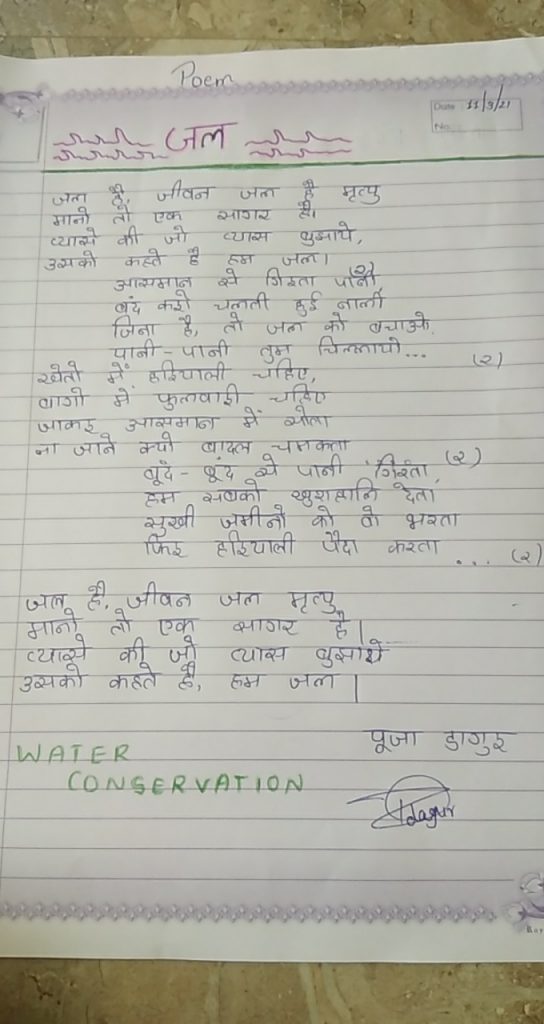 Poem
Date 11/3/21
No.
जल
जल है, जीवन जल है मृत्यु
मानो तो एक सागर है,
प्यासे की जो प्यास बुझाये,
उसको कहते है हम जल।
आसमान से गिरता पानी, (२)
बंद करो चलती हुई नाली
जिना है, तो जल को बचाओ,
पानी-पानी तुम चिल्लायो... (२)
खेतो में हरियाली चहिए,
बागो में फुलवारी चहिए
जाकर आसमान में
ना जाने क्यो बादल चमकता
बूंद-बूंद से पानी गिरता, (२)
हम सबको खुशहानि देता,
सुखी जमीनो को वो भरता
फिर हरियाली पैदा करता ... (२)
जल है, जीवन जल मृत्यु
मानो तो एक सागर है।
प्यासे की जो प्यास बुझाये
उसको कहते है, हम जल।
पूजा डागुर
WATER
CONSERVATION
Pdagur